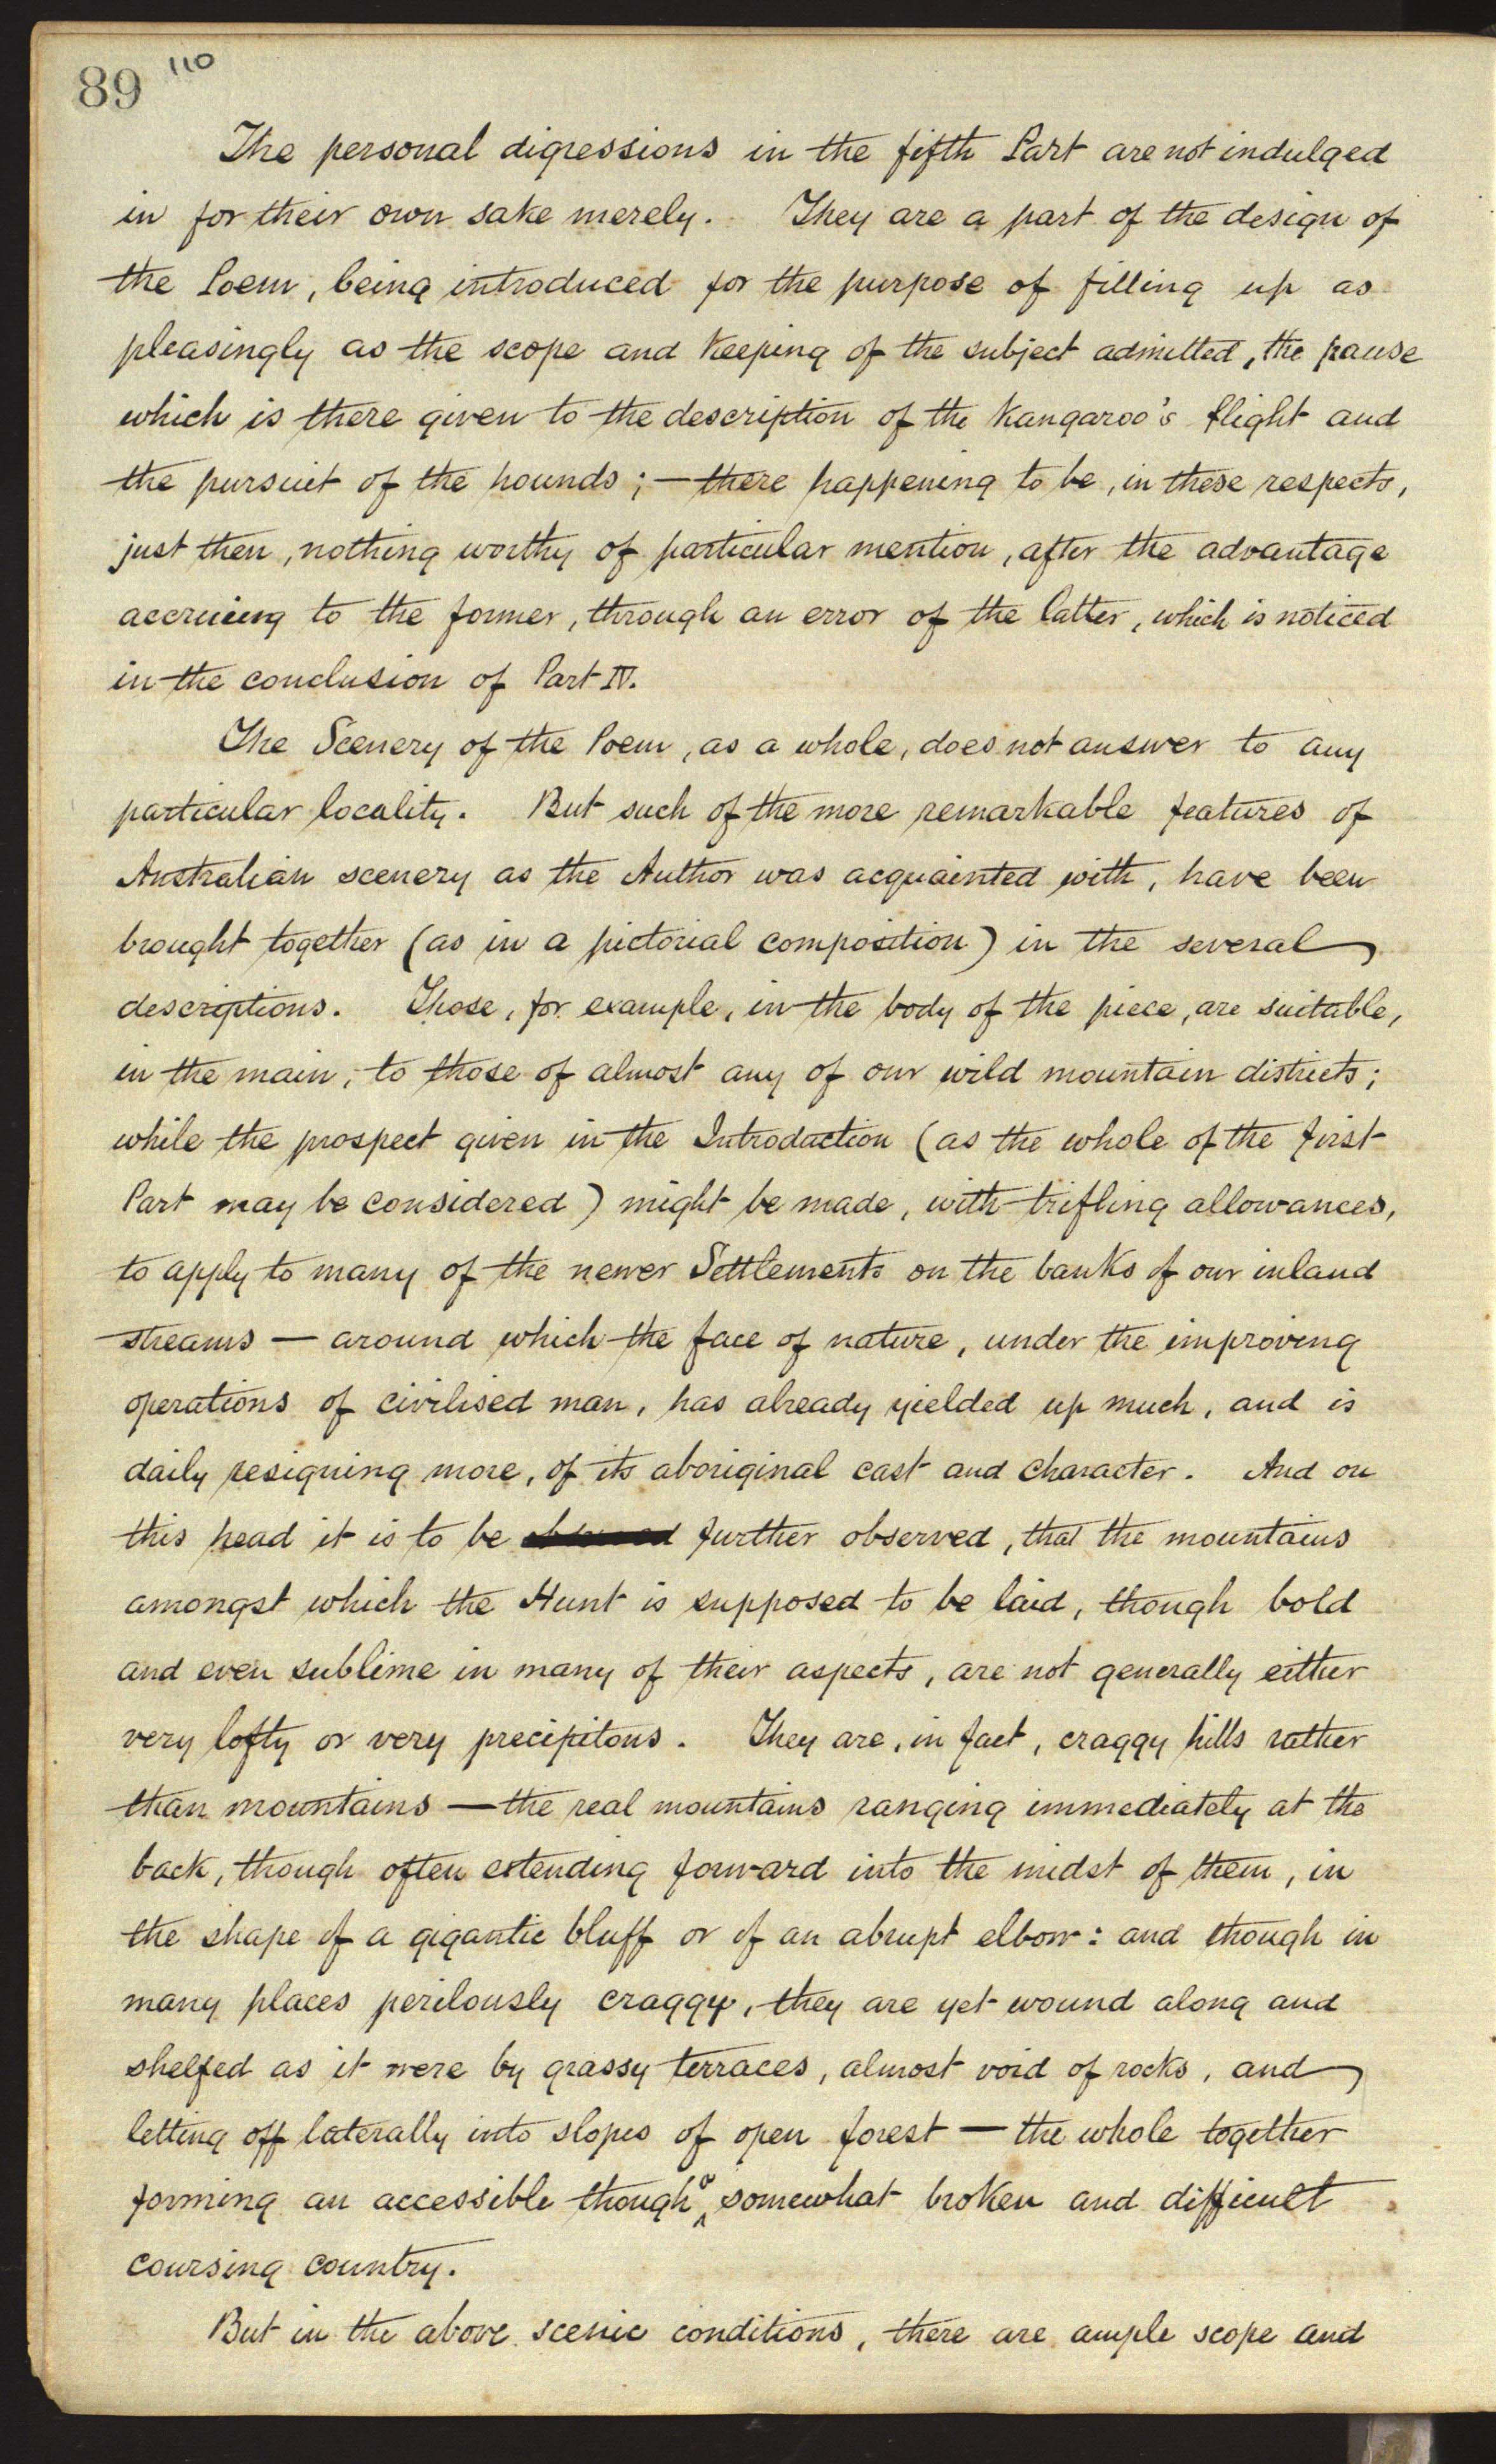 89 110
The personal digressions in the fifth Part are not indulged
in for their own sake merely. They are a part of the design of
the Poem, being introduced for the purpose of filling up as
pleasingly as the scope and keeping of the subject admitted, the pause
which is there given to the description of the Kangaroo's flight and
the pursuit of the hounds; — there happening to be, in these respects,
just then, nothing worthy of particular mention, after the advantage
accruing to the former, through an error of the latter, which is noticed
in the conclusion of Part IV.
The Scenery of the Poem, as a whole, does not answer to any
particular locality. But such of the more remarkable features of
Australian scenery as the Author was acquainted with, have been
brought together (as in a pictorial composition) in the several
descriptions. Those, for example, in the body of the piece, are suitable,
in the main, to those of almost any of our wild mountain districts;
while the prospect given in the Introdaction (as the whole of the first
Part may be considered) might be made, with trifling allowances,
to apply to many of the newer Settlements on the banks of our inland
streams — around which the face of nature, under the improving
operations of civilised man, has already yielded up much, and is
daily resigning more, of its aboriginal cast and character. And on
this head it is to be further observed, that the mountains
amongst which the Hunt is supposed to be laid, though bold
and even sublime in many of their aspects, are not generally either
very lofty or very precipitous. They are, in fact, craggy hills rather
than mountains — the real mountains ranging immediately at the
back, though often extending forward into the midst of them, in
the shape of a gigantic bluff or of an abrupt elbow: and though in
many places perilously craggy, they are yet wound along and
shelfed as it were by grassy terraces, almost void of rocks, and
letting off laterally into slopes of open forest — the whole together
forming an accessible though a somewhat broken and difficult
coursing country.
But in the above scenic conditions, there are ample scope and